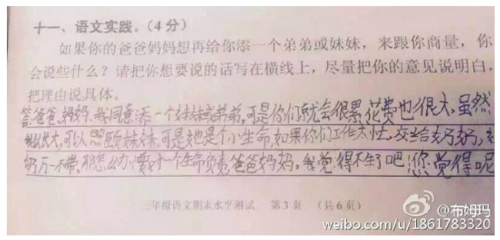 十一、语文实践。(4分)
如果你的爸爸妈妈想再给你添一个弟弟或妹妹，来跟你商量，你
会说些什么？请把你想要说的话写在横线上，尽量把你的意见说明白，
把理由说具体。
答爸爸,妈妈,我同意添一个妹妹或弟弟,可是你们就会很累,花费也很大,虽然
我长大,可以照顾妹妹,可是她是个小生命,如果你们工作太忙,交给奶奶,
奶万一不带,那怎么办,要对一个生命负责爸爸妈妈,我觉得不生了吧!您觉得呢
三年级语文期末水平测试 第3页 (共6页)
@布姆玛
weibo.com/u/1861783320